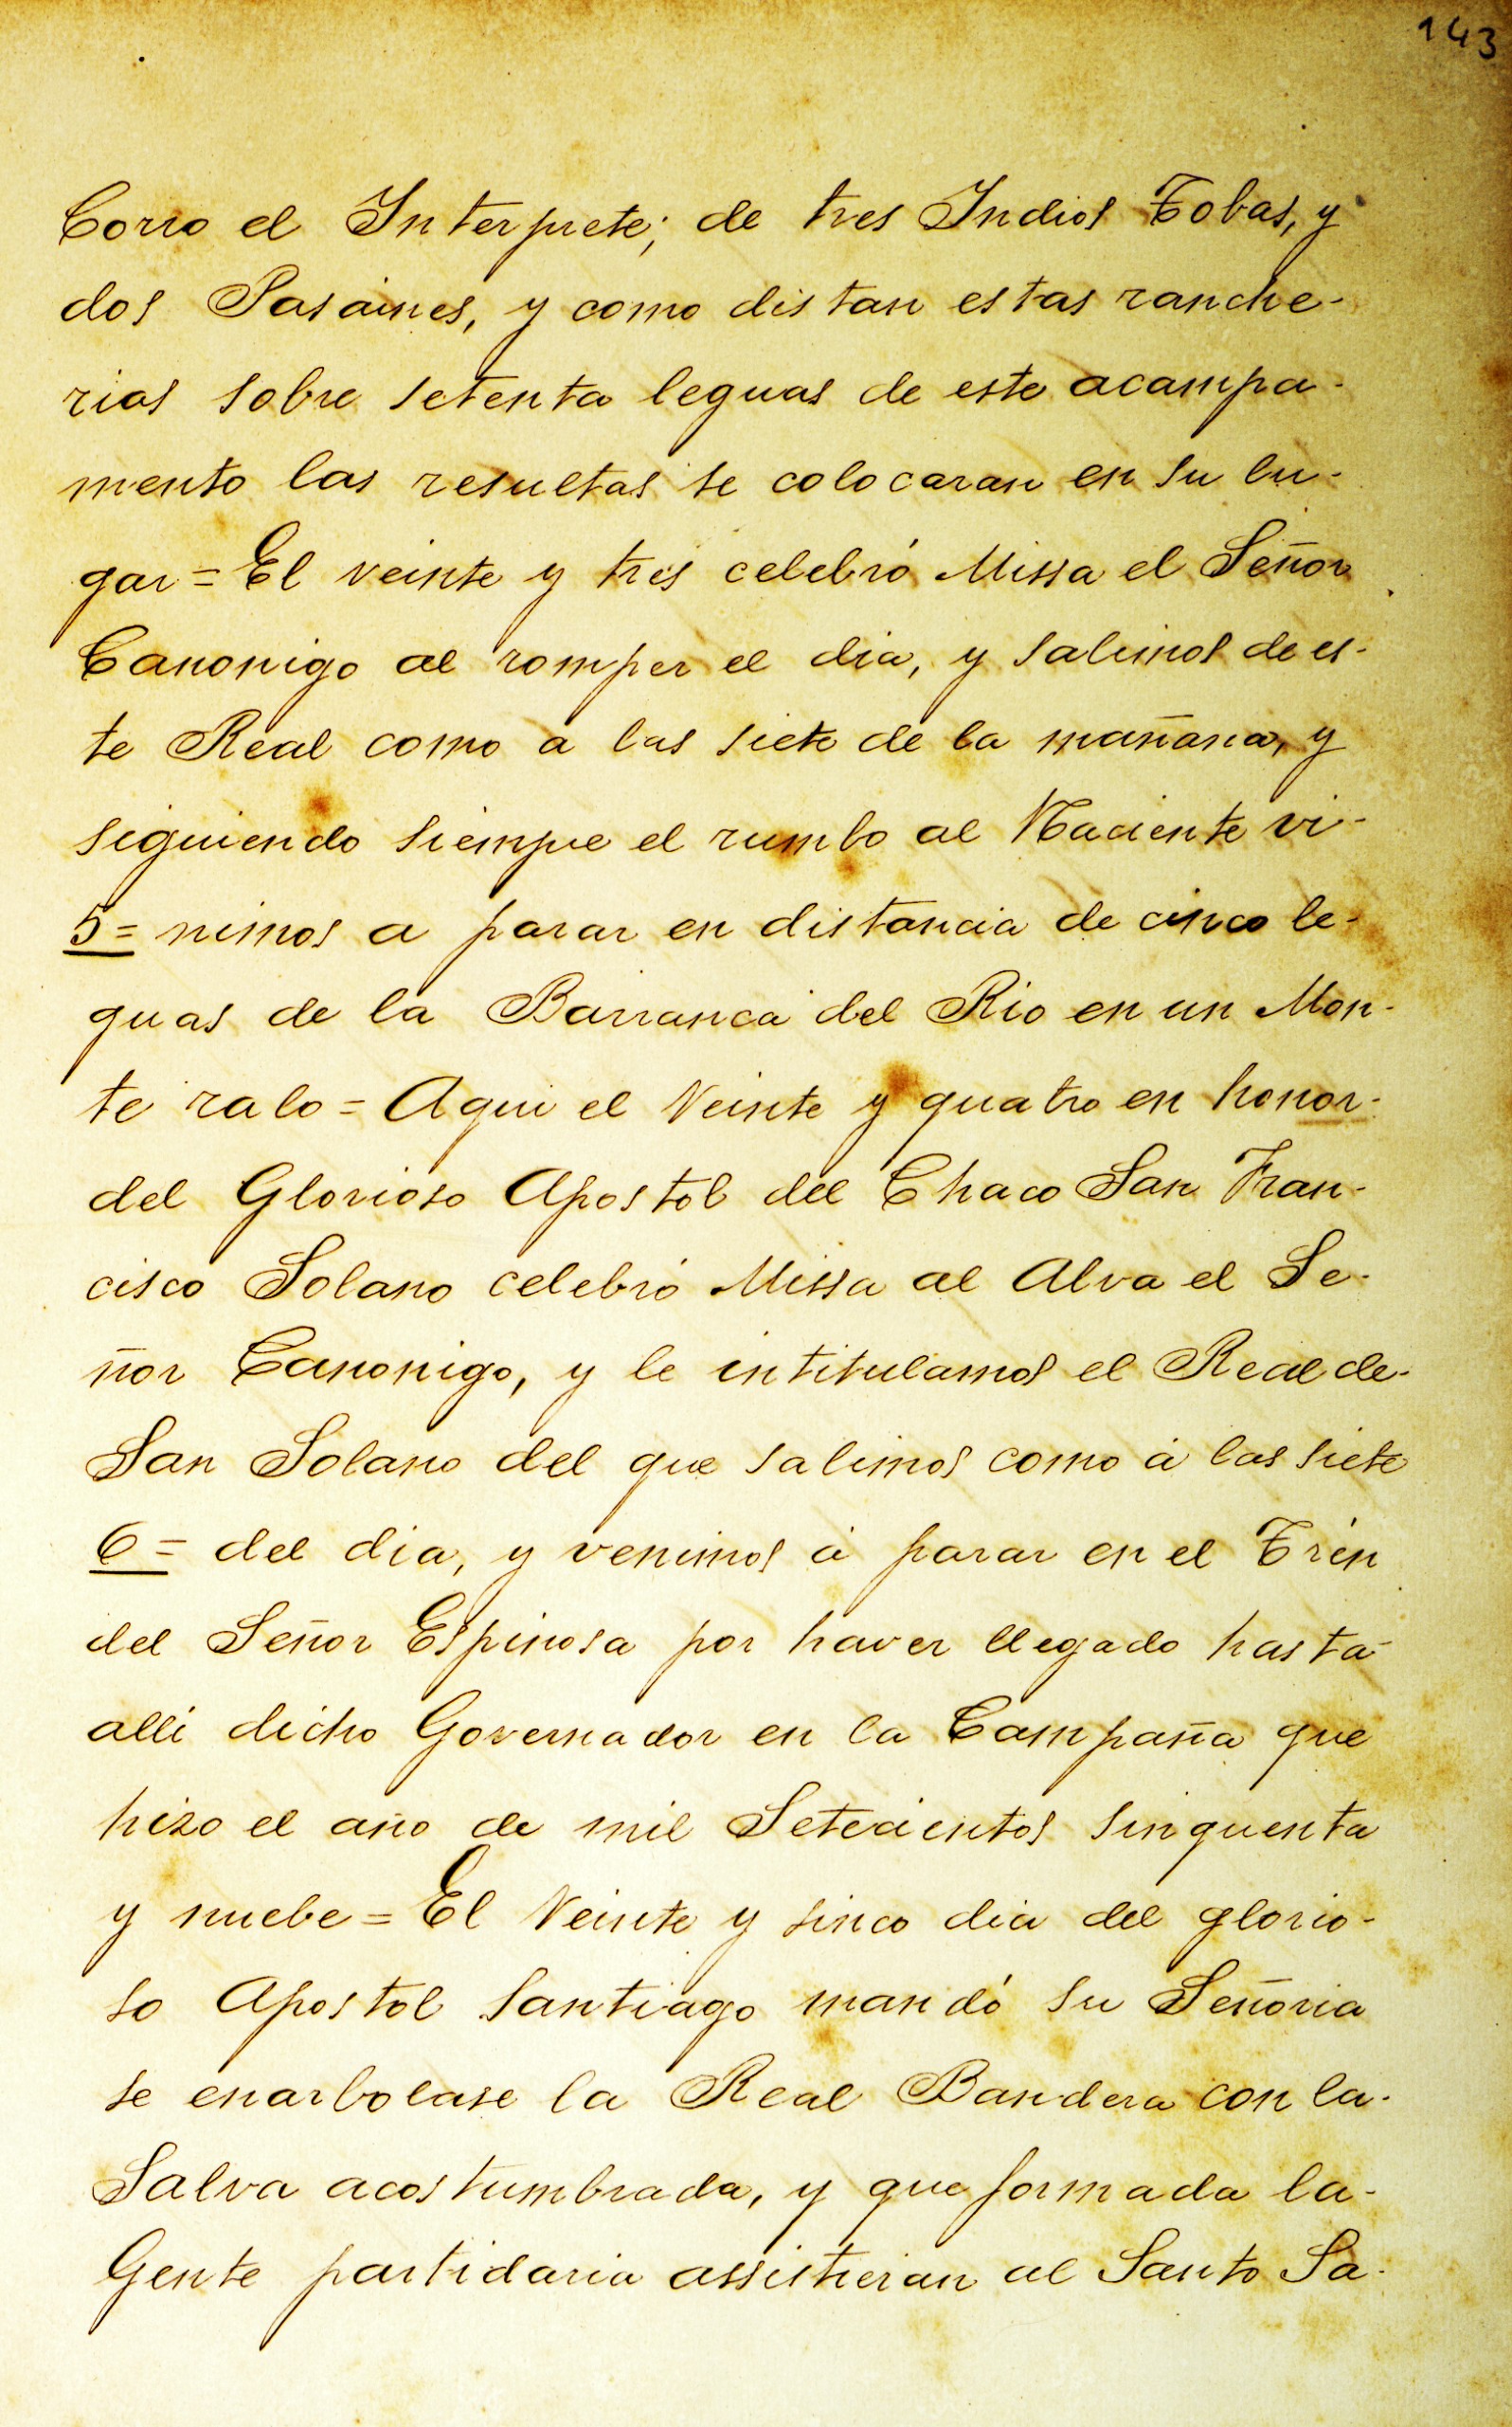 143
Corro el Interprete; de tres Indios Tobas, y
dos Pasaines, y como distan estas ranche-
rias sobre setenta leguas de este acampa-
mento las resultas se colocaran en su lu-
gar = El veinte y tres celebró Missa el Señor
Canonigo al romper el dia, y salimos de es-
te Real como a las siete de la mañana, y
siguiendo siempre el rumbo al Naciente vi-
5 = nimos a parar en distancia de cinco le-
guas de la Barranca del Rio en un Mon-
te ralo = Aqui el Veinte y quatro en honor-
del Glorioso Apostol del Chaco San Fran-
cisco Solano celebró Missa al Alva el Se-
ñor Canonigo, y le intitulamos el Real de-
San Solano del que salimos como á las siete
6 = del dia, y venimos á parar en el Trén
del Señor Espinosa por haver llegado hasta
alli dicho Governador en la Campaña que
hizo el año de mil Setecientos sinquenta
y nuebe = El Veinte y sinco dia del glorio-
so Apostol Santiago mandó su Señoria
se enarbolase la Real Bandera con la-
Salva acostumbrada, y que formada la-
Gente partidaria assistieran al Santo Sa-